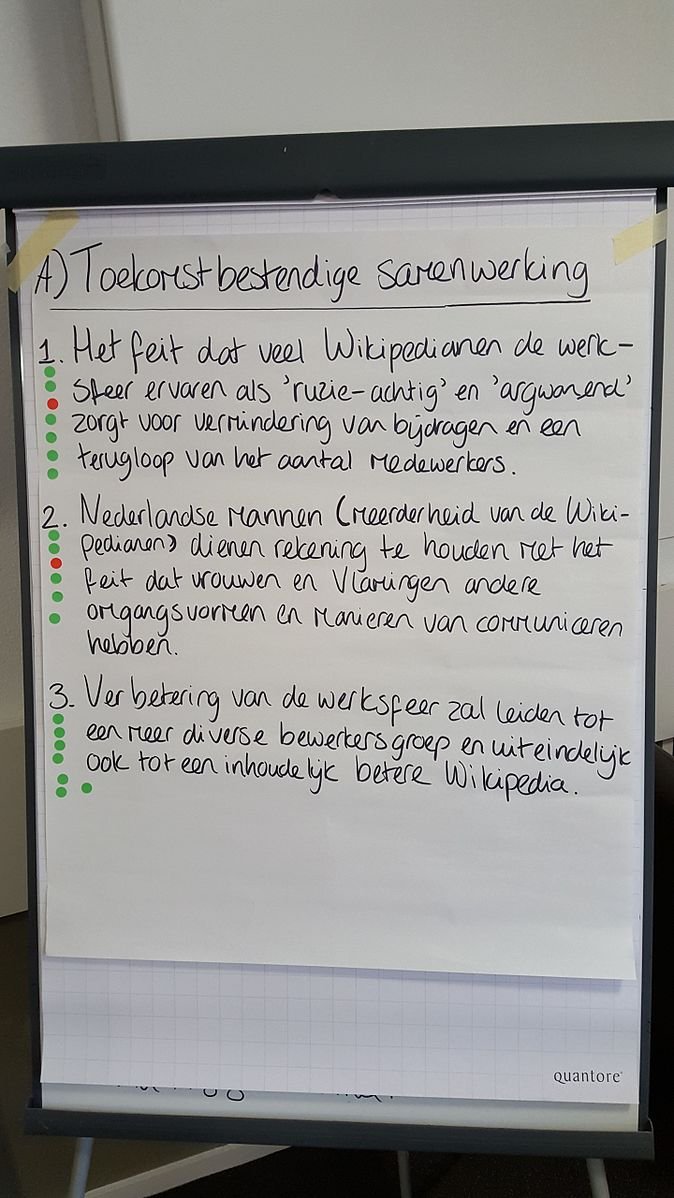 A) Toekomstbestendige samenwerking
1. Het feit dat veel Wikipedianen de werk-
sfeer ervaren als 'ruzie-achtig' en 'argwanend'
zorgt voor vermindering van bijdragen en een
terugloop van het aantal medewerkers.
2. Nederlandse mannen (meerderheid van de Wiki-
pedianen) dienen rekening te houden met het
feit dat vrouwen en Vlamingen andere
omgangsvormen en manieren van communiceren
hebben.
3. Verbetering van de werksfeer zal leiden tot
een meer diverse bewerkersgroep en uiteindelijk
ook tot een inhoudelijk betere Wikipedia.
quantore